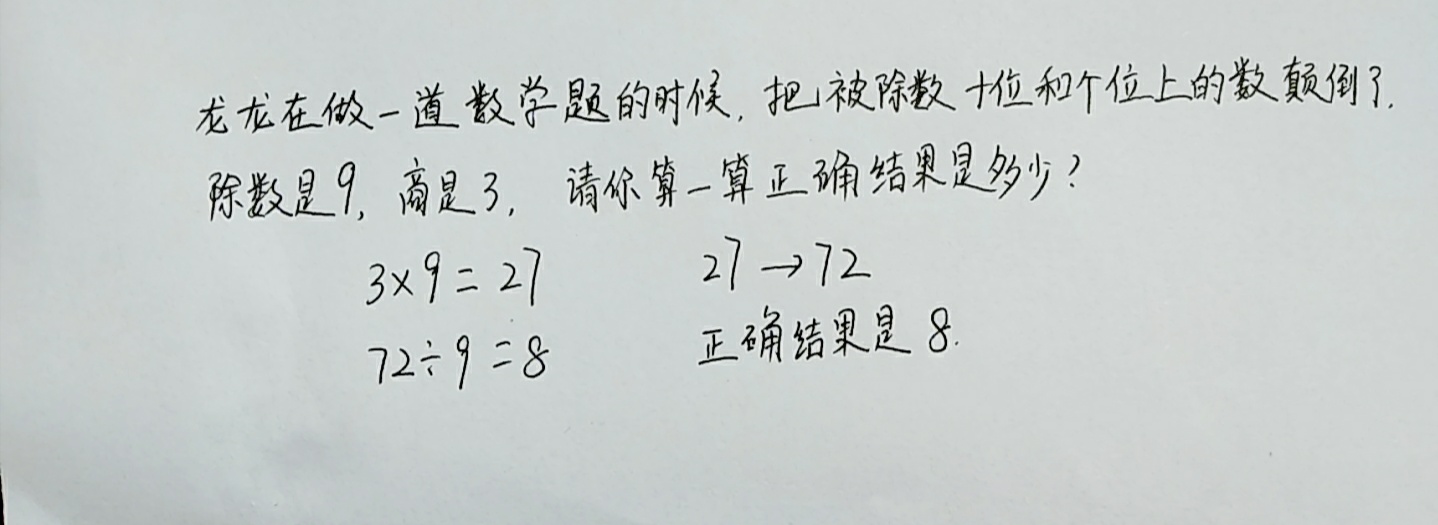 龙龙在做一道数学题的时候，把被除数十位和个位上的数颠倒了.
除数是9，商是3，请你算一算正确结果是多少？
3×9=27 27→72
72÷9=8 正确结果是8.